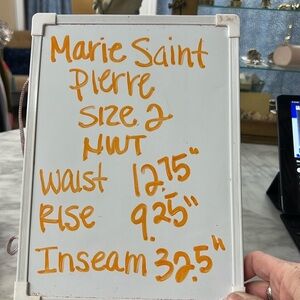 Marie Saint
Pierre
Size 2
NWT
Waist 12.75"
Rise 9.25"
Inseam 32.5"